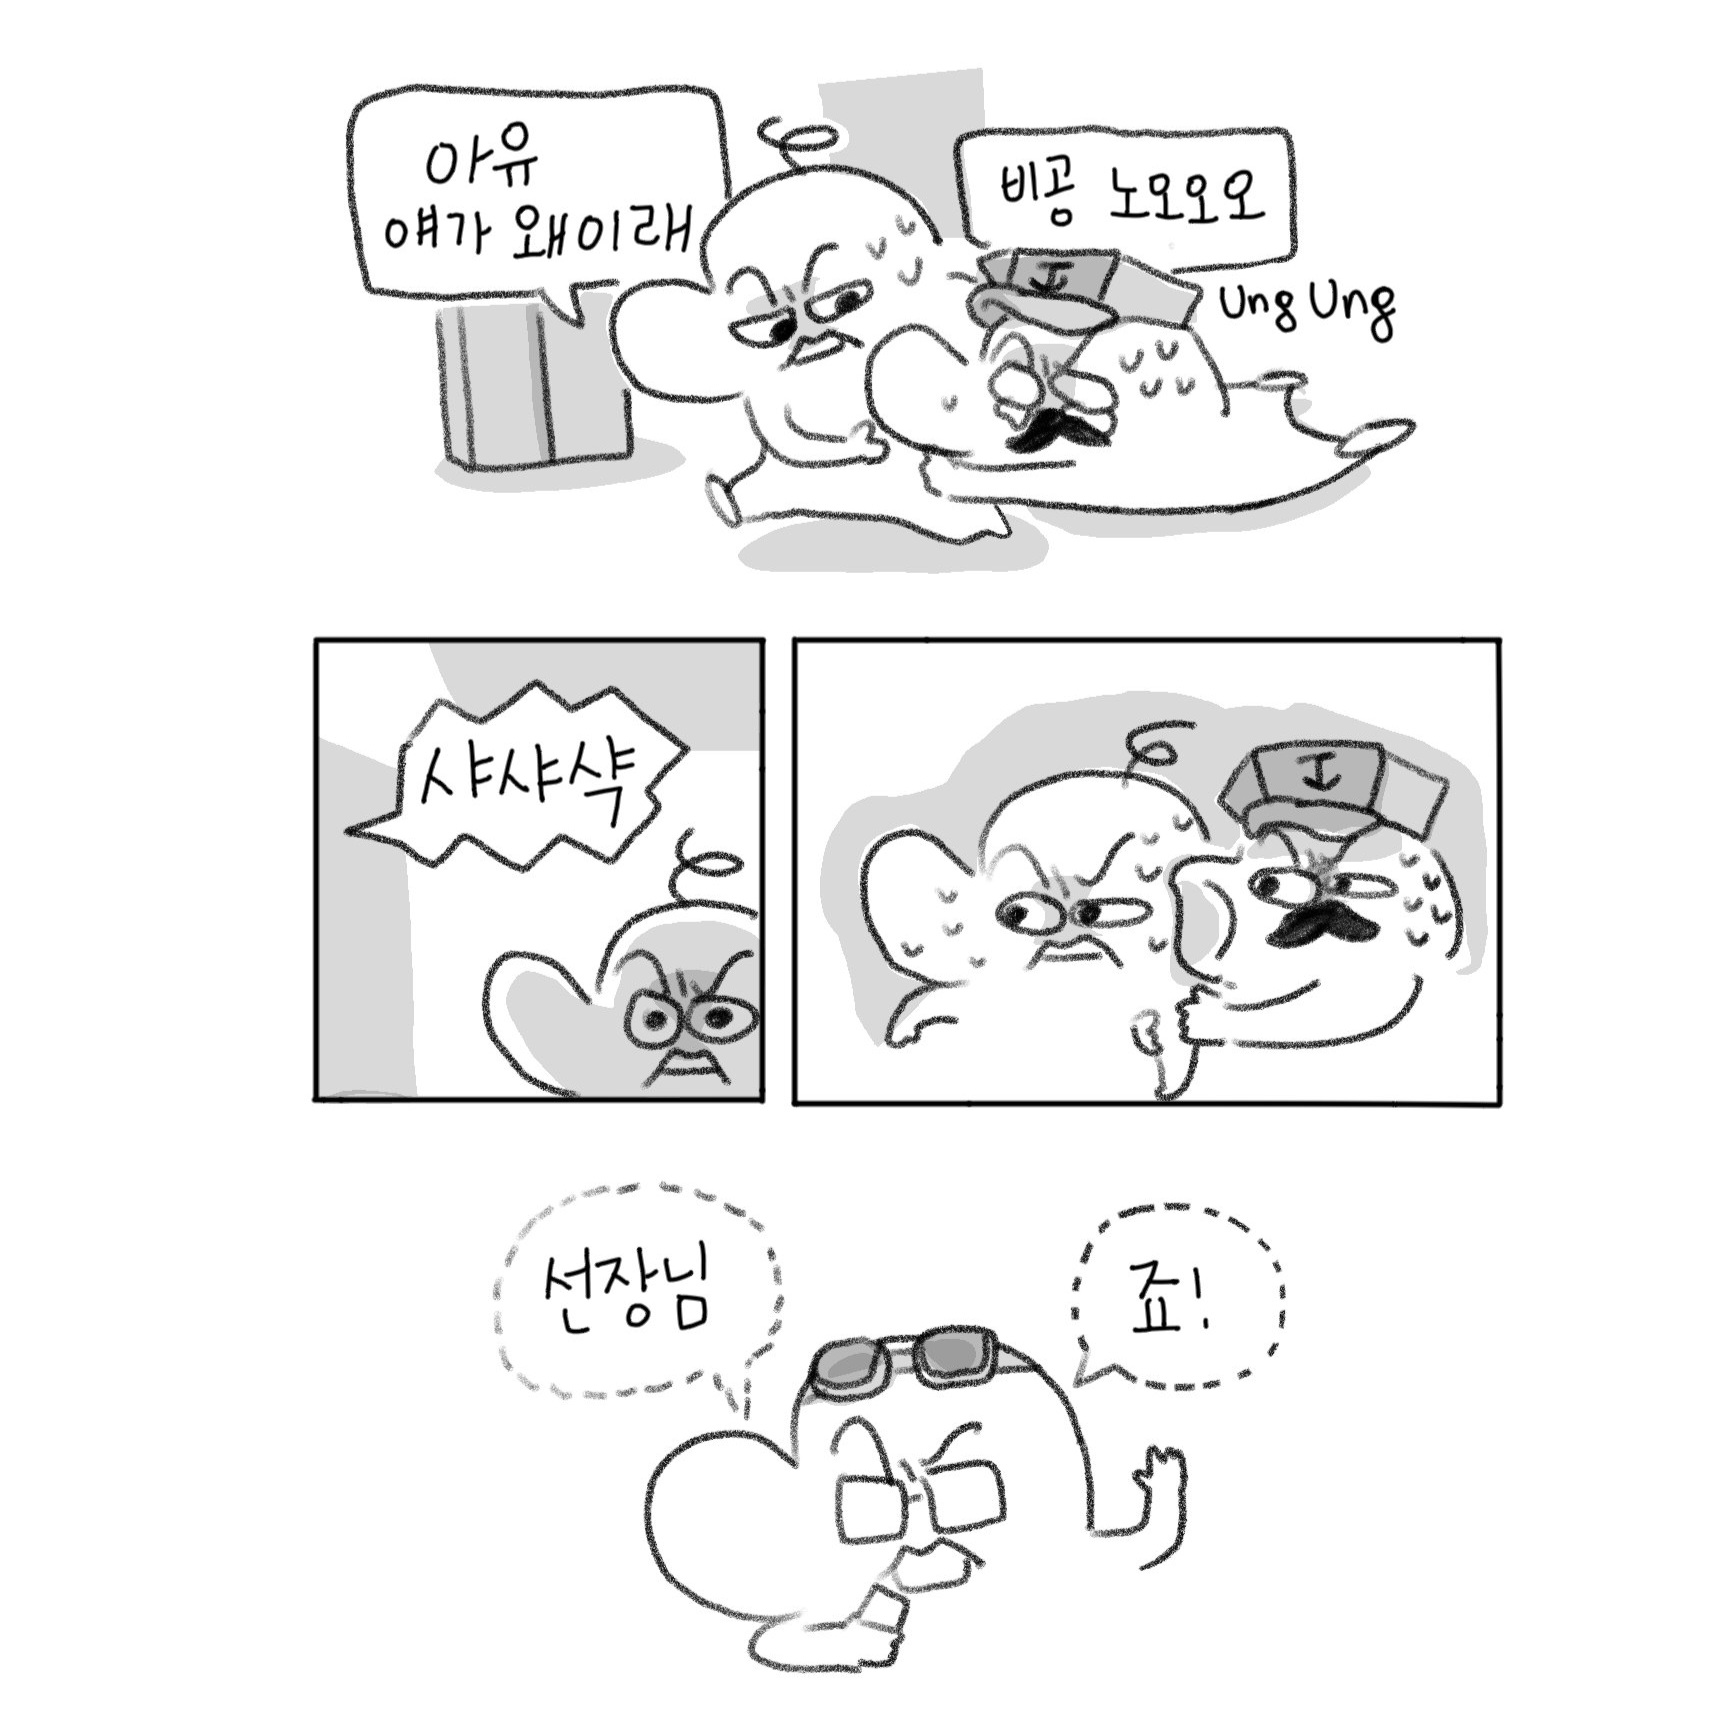 아유
얘가 왜이래
비공 노오오오
Ung Ung
샤샤샥
선장님
죠!